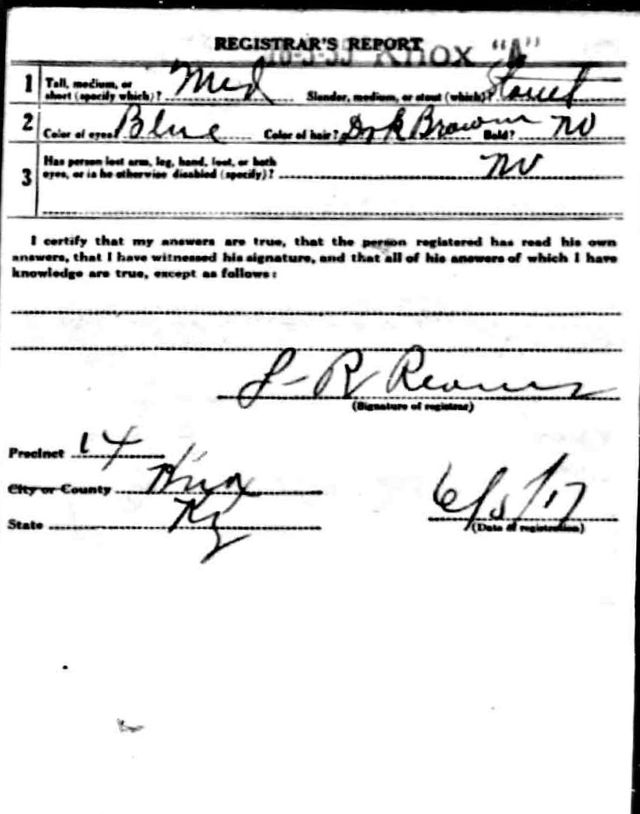 REGISTRAR'S REPORT
16-3-35 Knox "A"
1 Tall, medium, or short (specify which)? Med Slender, medium, or stout (which)? Stout
2 Color of eyes Blue Color of hair? Drk Brown Bald? no
3 Has person lost arm, leg, hand, foot, or both
eyes, or is he otherwise disabled (specify)? no
I certify that my answers are true, that the person registered has read his own
answers, that I have witnessed his signature, and that all of his answers of which I have
knowledge are true, except as follows:
J-R
(Signature of registrar)
Precinct 14
City or County Knox
State Ky
6/5/17
(Date of registration)